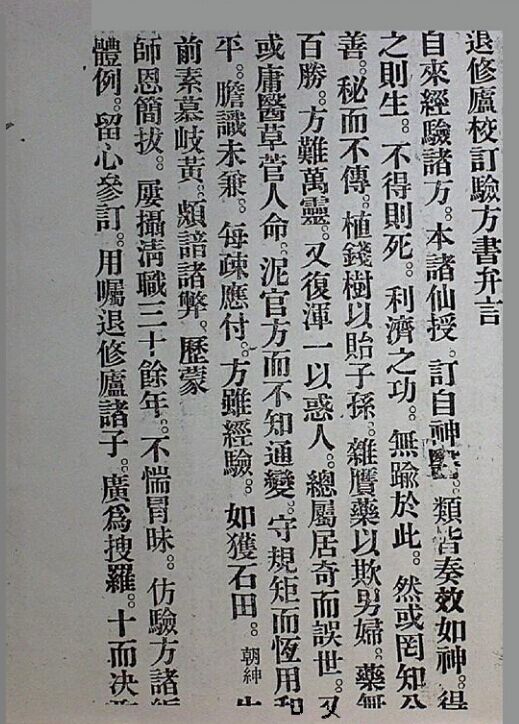 退修廬校訂驗方書弁言
自來經驗諸方。本諸仙授。訂自神醫。類皆奏效如神。得
之則生。不得則死。利濟之功。無踰於此。然或罔知公
善。秘而不傳。植錢樹以貽子孫。雜贋藥以欺男婦。藥無
百勝。方難萬靈。又復渾一以惑人。總屬居奇而誤世。又
或庸醫草菅人命。泥官方而不知通變。守規矩而恆用和
平。膽識未兼。每疎應付。方雖經驗。如獲石田。朝紳生
前素慕岐黃。頗諳諸弊。歷蒙
師恩簡拔。屢攝淸職三十餘年。不惴冒昧。仿驗方諸
體例。留心參訂。用囑退修廬諸子。廣爲搜羅。十而決